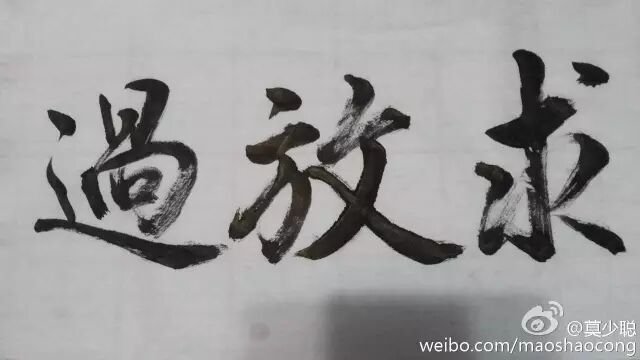 過放求
@莫少聪
weibo.com/maoshaocong